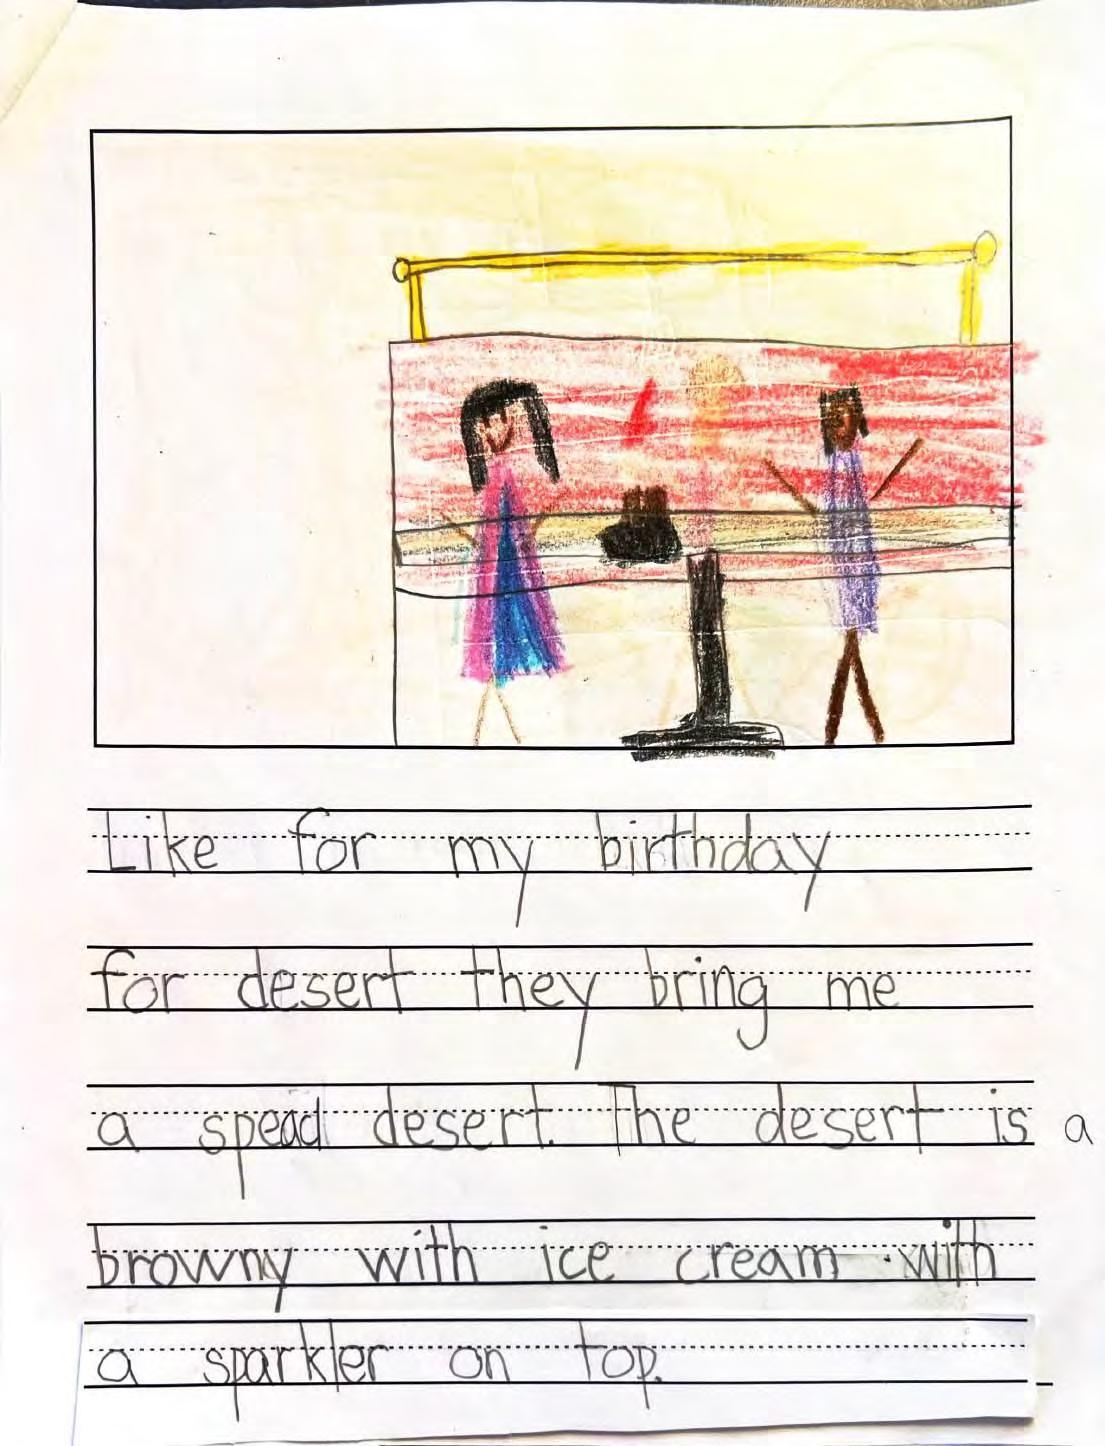 Like for my birthday
for desert they bring me
a spead desert. The desert is a
browny with ice cream with
a sparkler on top.